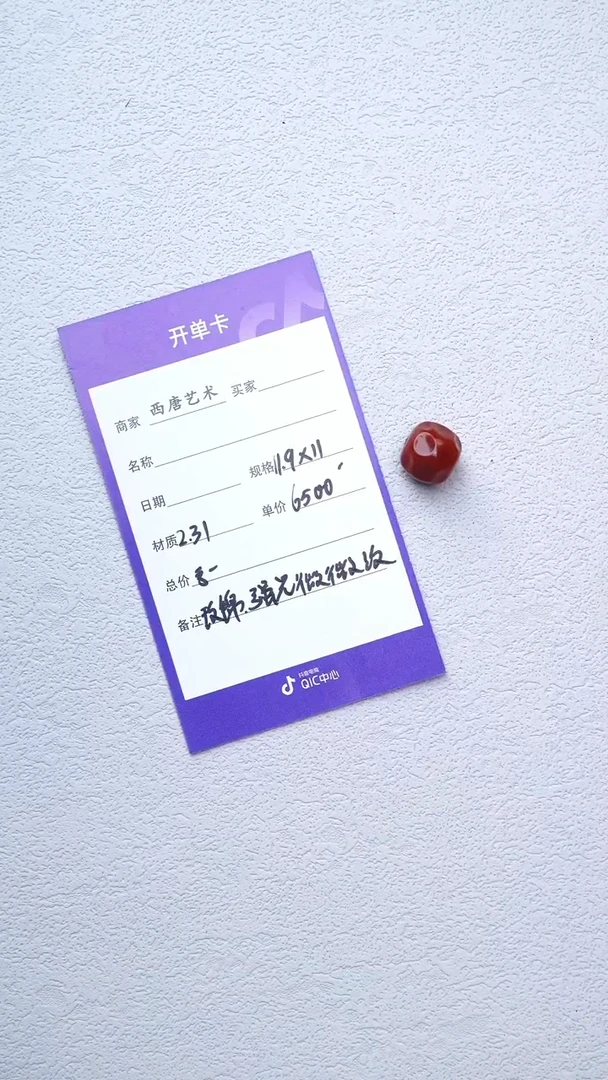 开单卡
商家 西唐艺术 买家
名称
日期 规格 11.9×11
材质 2.31 单价 6500
总价
备注 强光微微纹
抖音电商
QIC中心